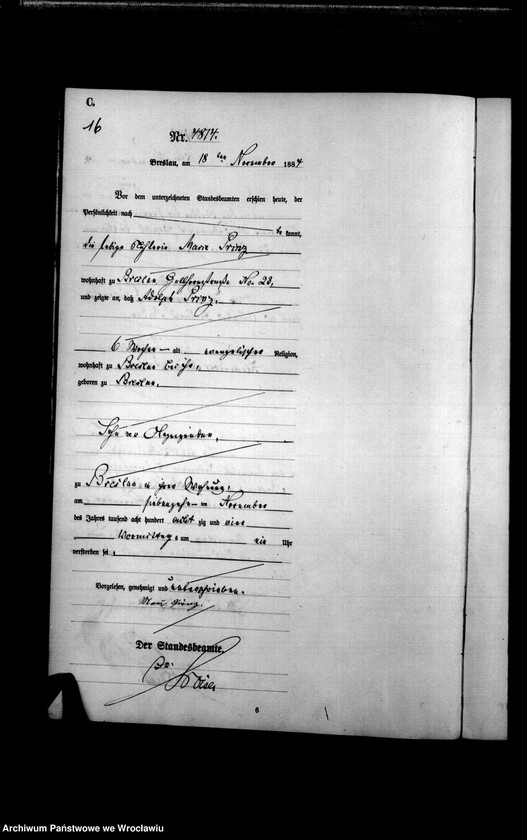 C.
16
Nr. 4874.
Breslau, am 18 ten November 1884
Vor dem unterzeichneten Standesbeamten erschien heute, der
Persönlichkeit nach
be kannt,
die ledige Maria Prinz
wohnhaft zu Breslau No. 23,
und zeigte an, daß Adolph Prinz,
6 Wochen alt evangelischer Religion,
wohnhaft zu Breslau bei ihr,
geboren zu Breslau,
Sohn der
zu Breslau in ihrer Wohnung,
am siebzehnten November
des Jahres tausend acht hundert achtzig und vier
Vormittags um ein Uhr
verstorben sei,
Vorgelesen, genehmigt und unterschrieben.
Der Standesbeamte.
6
Archiwum Państwowe we Wrocławiu